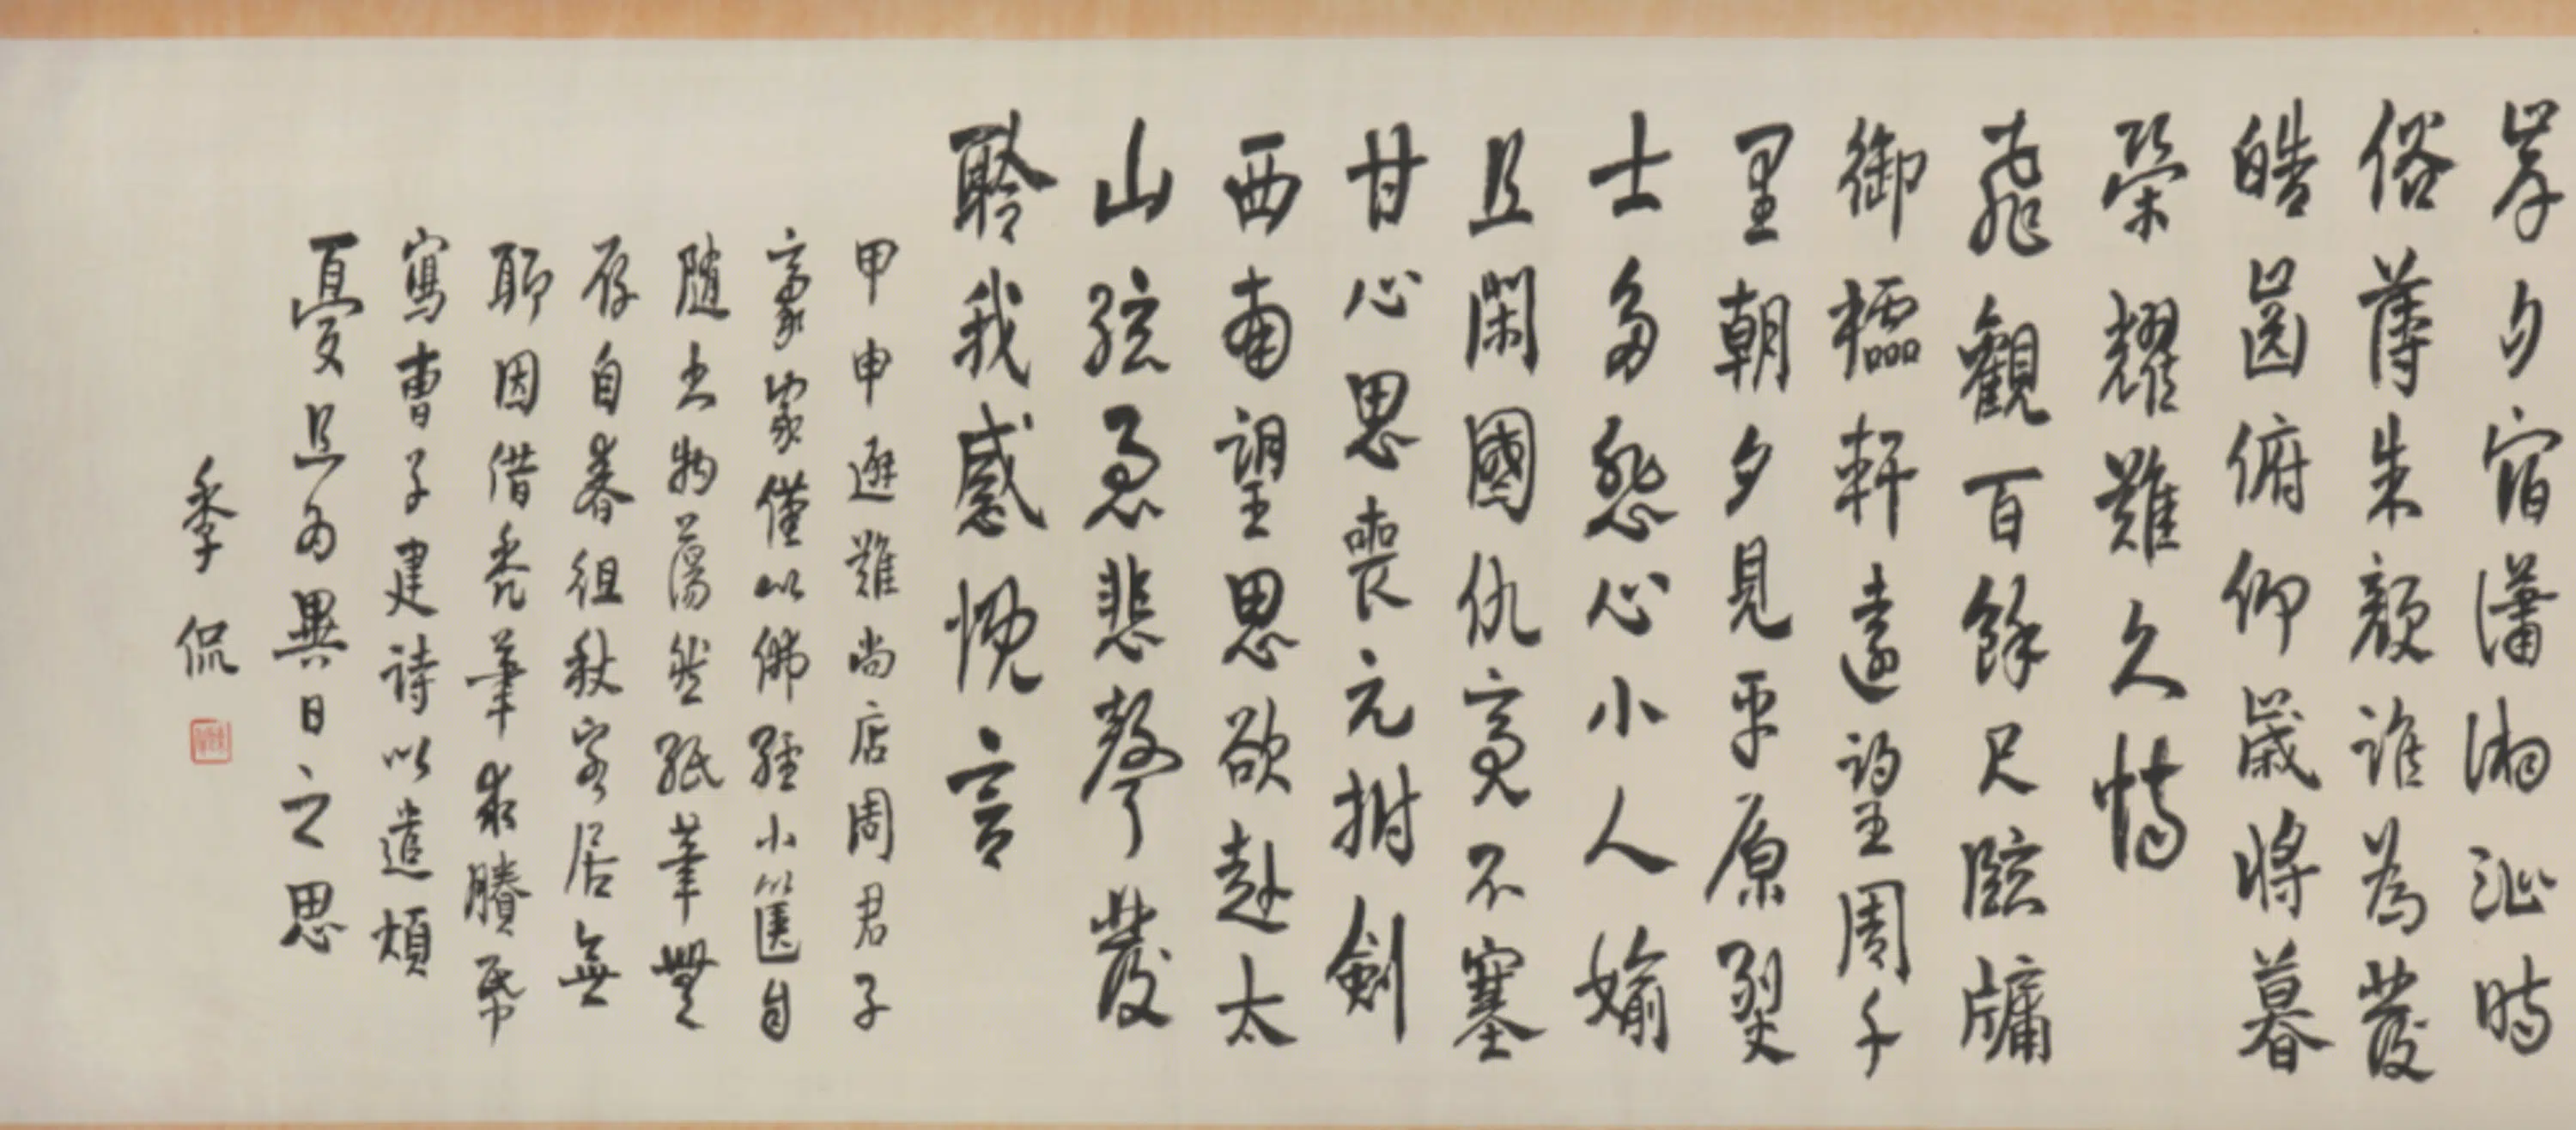 岸夕宿瀟湘沚時
俗薄朱顏誰為發
皓齒俯仰歲將暮
榮耀難久恃
飛觀百餘尺臨牖
御櫺軒遠望周千
里朝夕見平原烈
士多悲心小人媮
且閑國仇亮不塞
甘心思喪元拊劍
西南望思欲赴太
山弦急悲聲發
聆我感慨言
甲申避難尚店周君子
豪家僅以佛經小篋自
隨物蕩然紙筆無
存自春徂秋客居無
聊因借禿筆求賸帋
寫曹子建詩以遣煩
憂且為異日之思
季侃